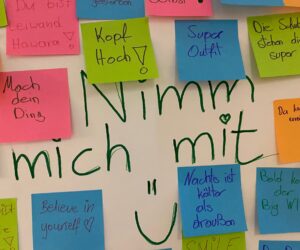 Du bist
leiwand
Hawara!
Kopf
Hoch!
Super
Outfit
Die
schon
super
Mach
dein
Ding
Nimm
mich mit
ü
Believe in
yourself ♡
Nachts ist
kälter
als
draußen
Bald
der
Big